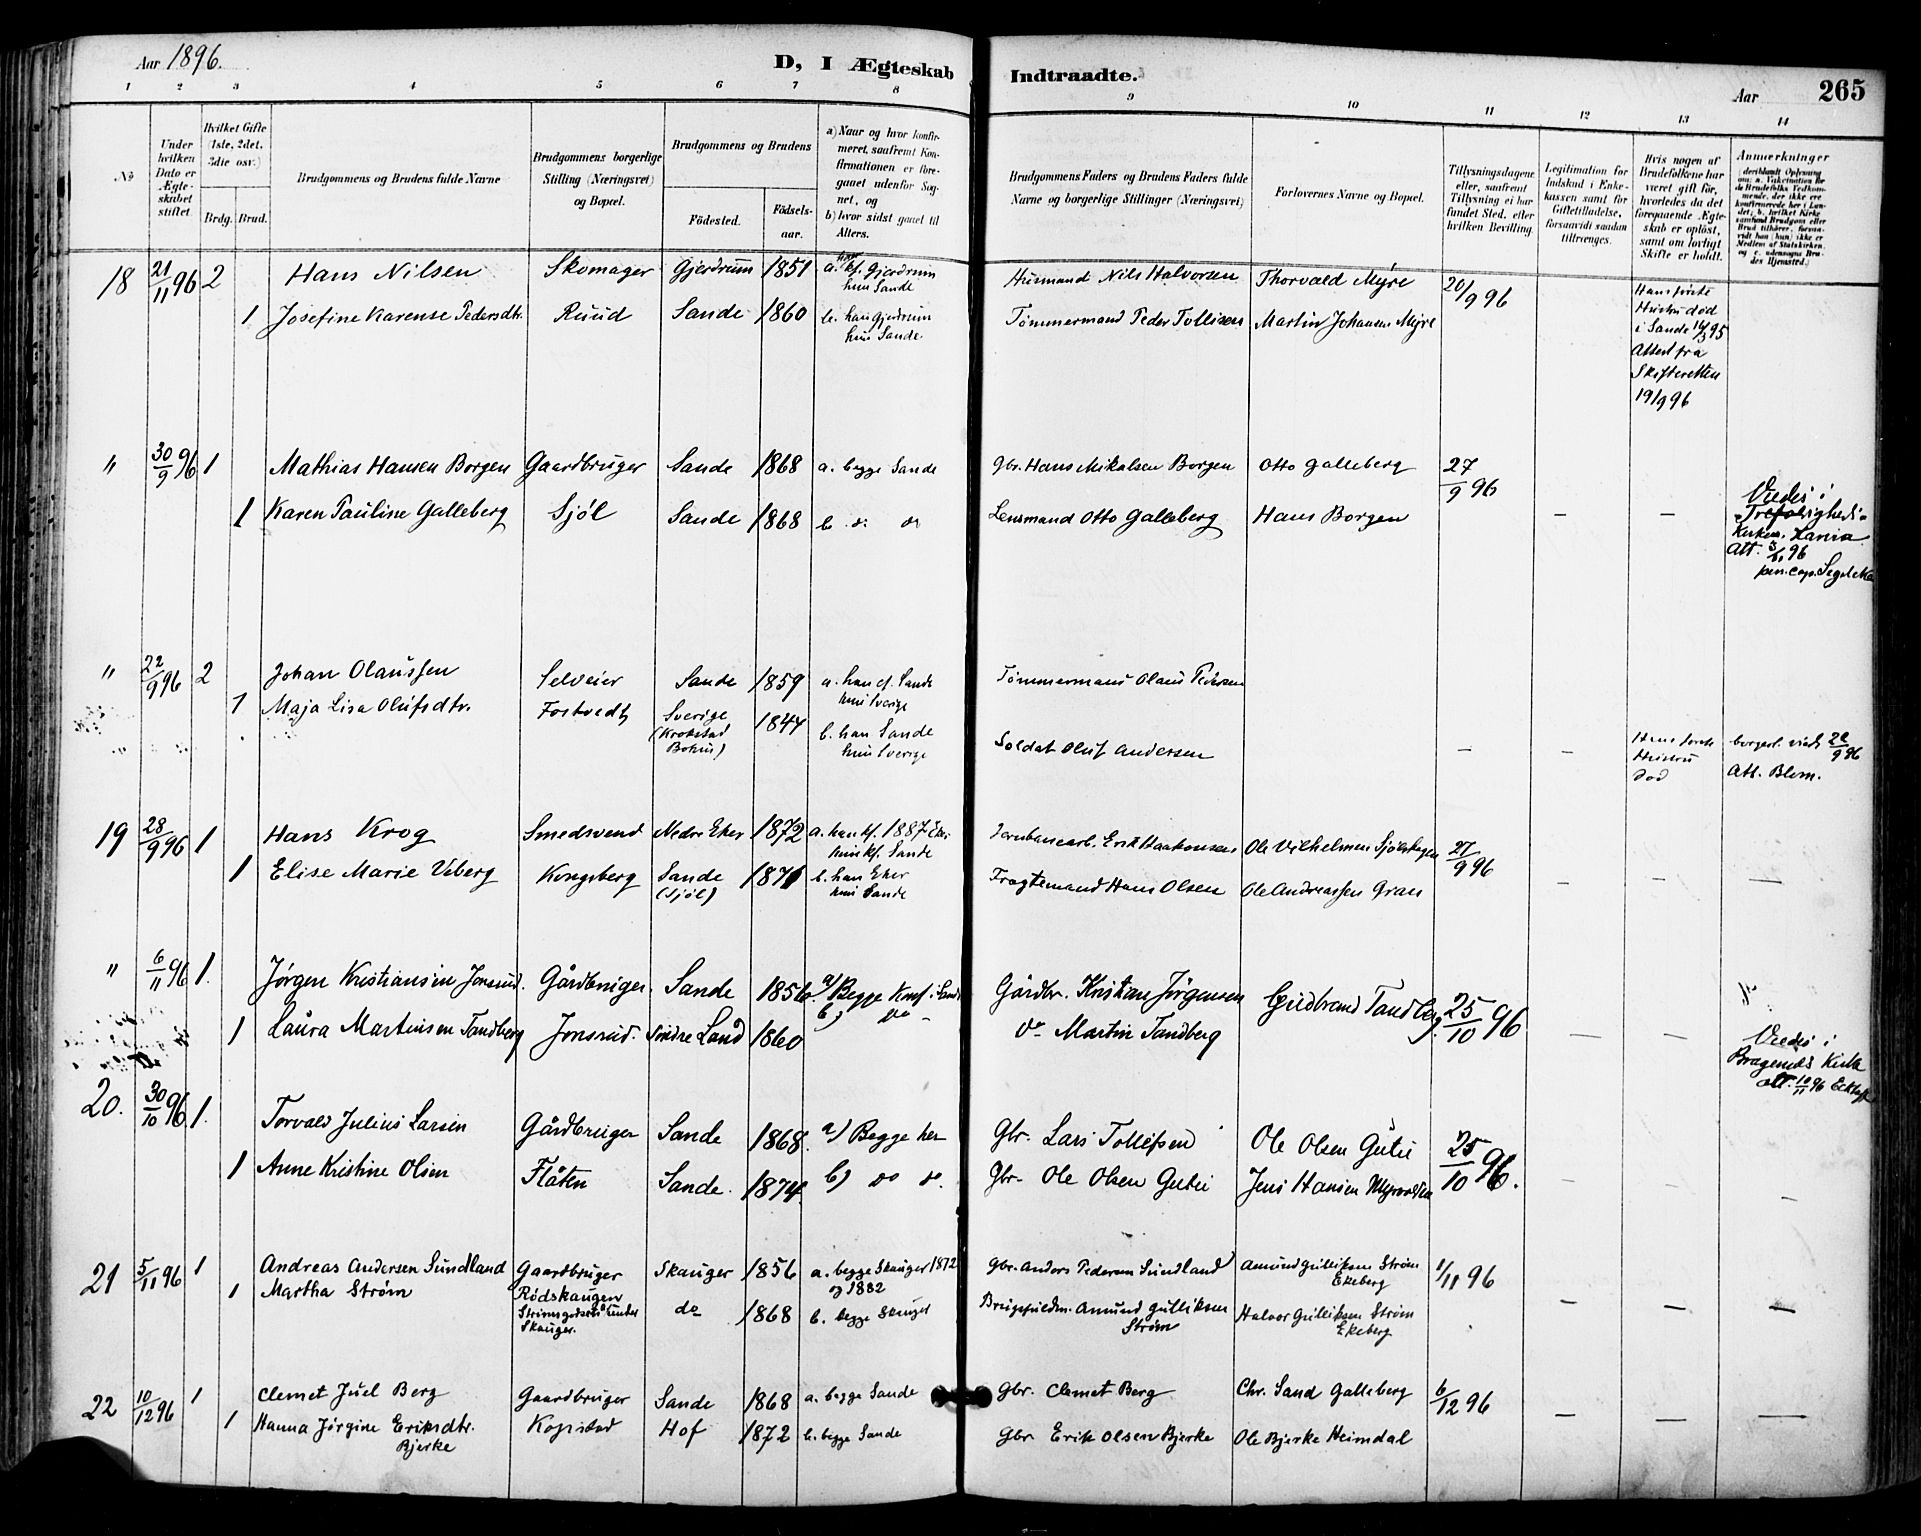 Aar 1896.
D, I Ægteskab Indtraadte.
Aar 265
1 2 3 4 5 6 7 8 9 10 11 12 13 14
No
Under hvilken Dato er Ægteskabet stiftet.
Hvilket Gifte (1ste, 2det, 3die osv.)
Brdg. Brud.
Brudgommens og Brudens fulde Navne
Brudgommens borgerlige Stilling (Næringsvei) og Bopæl.
Brudgommens og Brudens
Födested.
Födselsaar.
a) Naar og hvor konfirmeret, saafremt Konfirmationen er foregaaet udenfor Sognet, og
b) hvor sidst gaaet til Alters.
Brudgommens Faders og Brudens Faders fulde Navne og borgerlige Stillinger (Næringsvei)
Forlovernes Navne og Bopæl.
Tillysningsdagene eller, saafremt Tillysning ei har fundet Sted, efter hvilken Bevilling.
Legitimation for Indskud i Enkekassen samt for Giftetilladelse, forsaavidt saadan tiltrænges.
Hvis nogen af Brudefolkene har været gift för, hvorledes da det foregaaende Ægteskab er oplöst, samt om lovligt Skifte er holdt.
Anmerkninger
18 21/11 96 2 Hans Nilsen Skomager Gjerdrum 1851 a. kf. Gjerdrum
hun Sande
Husmand Nils Halvorsen Thorvald Myre 20/9 96
1 Josefine Karense Pedersdtr. Ruud Sande 1860 b. han Gjerdrum
hun Sande
Tømmermand Peder Tollisen Martin Johansen Myre
Hans første
Hustru død
i Sande 16/3 95
Attest fra
Skifteretten
19/9 96
" 30/9 96 1 Mathias Hansen Borgen Gaardbruger Sande 1868 a. begge Sande
Gbr. Hans Mikalsen Borgen Otto Galleberg 27/9 96
1 Karen Pauline Galleberg Sjöl Sande 1868 b. do do
Lensmand Otto Galleberg Hans Borgen — —
Viedes i
Trefoldigheds-
Kirken,
Att. 96
" 22/9 96 2 Johan Olaussen Selveier Sande 1859 a. han cf. Sande
hun Sverige
Tömmermand Olaus Pedersen
1 Maja Lisa Olufsdtr. Fostvedt Sverige
(Krokstad
Bohus) 1847 b. han Sande
hun Sverige
Soldat Oluf Andersen — —
Hans første
Hustru
død
borgerl. viede 22/9 96
Att. Blom.
19 28/9 96 1 Hans Krog Smedsvend Nedre Eker 1872 a. han kf. 1887 Eker
hun kf. Sande
Jernbanearb. Erik Haakonsen Ole Vilhelmsen Sjölshagen 27/9 96
1 Elise Marie Viberg Kongsberg Sande
(Sjöl) 1871 b. han Eker
hun Sande
Fragtemand Hans Olsen Ole Andreassen Gran — — —
" 6/11 96 1. Jørgen Kristiansen Jonsrud. Gårdbruger. Sande 1856 a) Begge Konf. i Sande
b) Do -
Gårdbr. Kristian Jørgensen Gudbrand Tandberg. 25/10 96
1 Laura Martinsen Tandberg Jonsrud. Søndre Land 1860
Do Martin Tandberg — —
Viedes i
Bragenæs Kirke
att. 10/11 96
20. 30/10 96 1. Torvald Julius Larsen Gårdbruger Sande 1868. a) Begge her
Gbr. Lars Tollefsen Ole Olsen Gutu 25/10 96.
1 Anne Kristine Olsen Flåten Sande. 1874. b) do do.
Gbr. Ole Olsen Gutu Jens Hansen Myrvolden — — —
21 5/11 96 1 Andreas Andersen Sundland Gaardbruger Skauger 1856 a. begge Skauger 1872
og 1882
Gbr. Anders Pedersen Sundland Amund Gulliksen Strøm
Ekeberg 1/11 96
1 Martha Strøm Rödskaugen
under
Skauger. do 1868 b. begge Skauger
Amund Gulliksen
Strøm
Halvor Gulliksen Strøm
Ekeberg — — —
22 10/12 96 1 Clemet Juel Berg Gaardbruger Sande 1868 a. begge Sande
Gbr. Clemet Berg Chr. Sand Galleberg 6/12 96
1 Hanna Jørgine Eriksdtr.
Bjerke Kopstad Hof 1872 b. begge Sande
Gbr Erik Olsen Bjerke Ole Bjerke Heimdal — — —